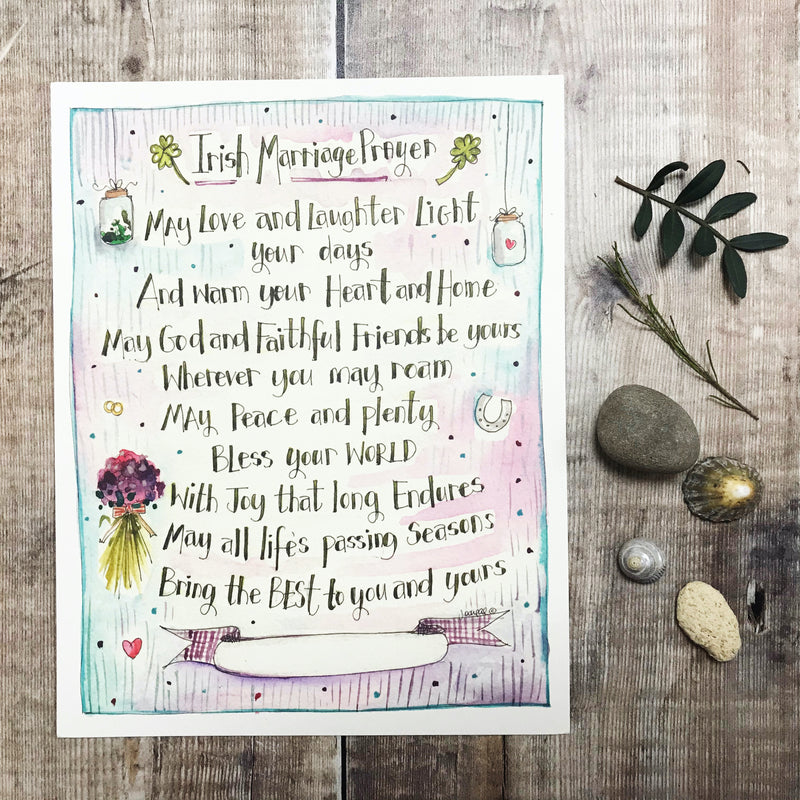 Irish Marriage Prayer
MAY LOVE and LAUGHTER LIGHT
your days
And warm your Heart and Home
May God and Faithful Friends be yours
Wherever you may roam
MAY Peace and plenty
BLess your WORLD
With Joy that long Endures
May all life's passing Seasons
Bring the BEST to you and yours